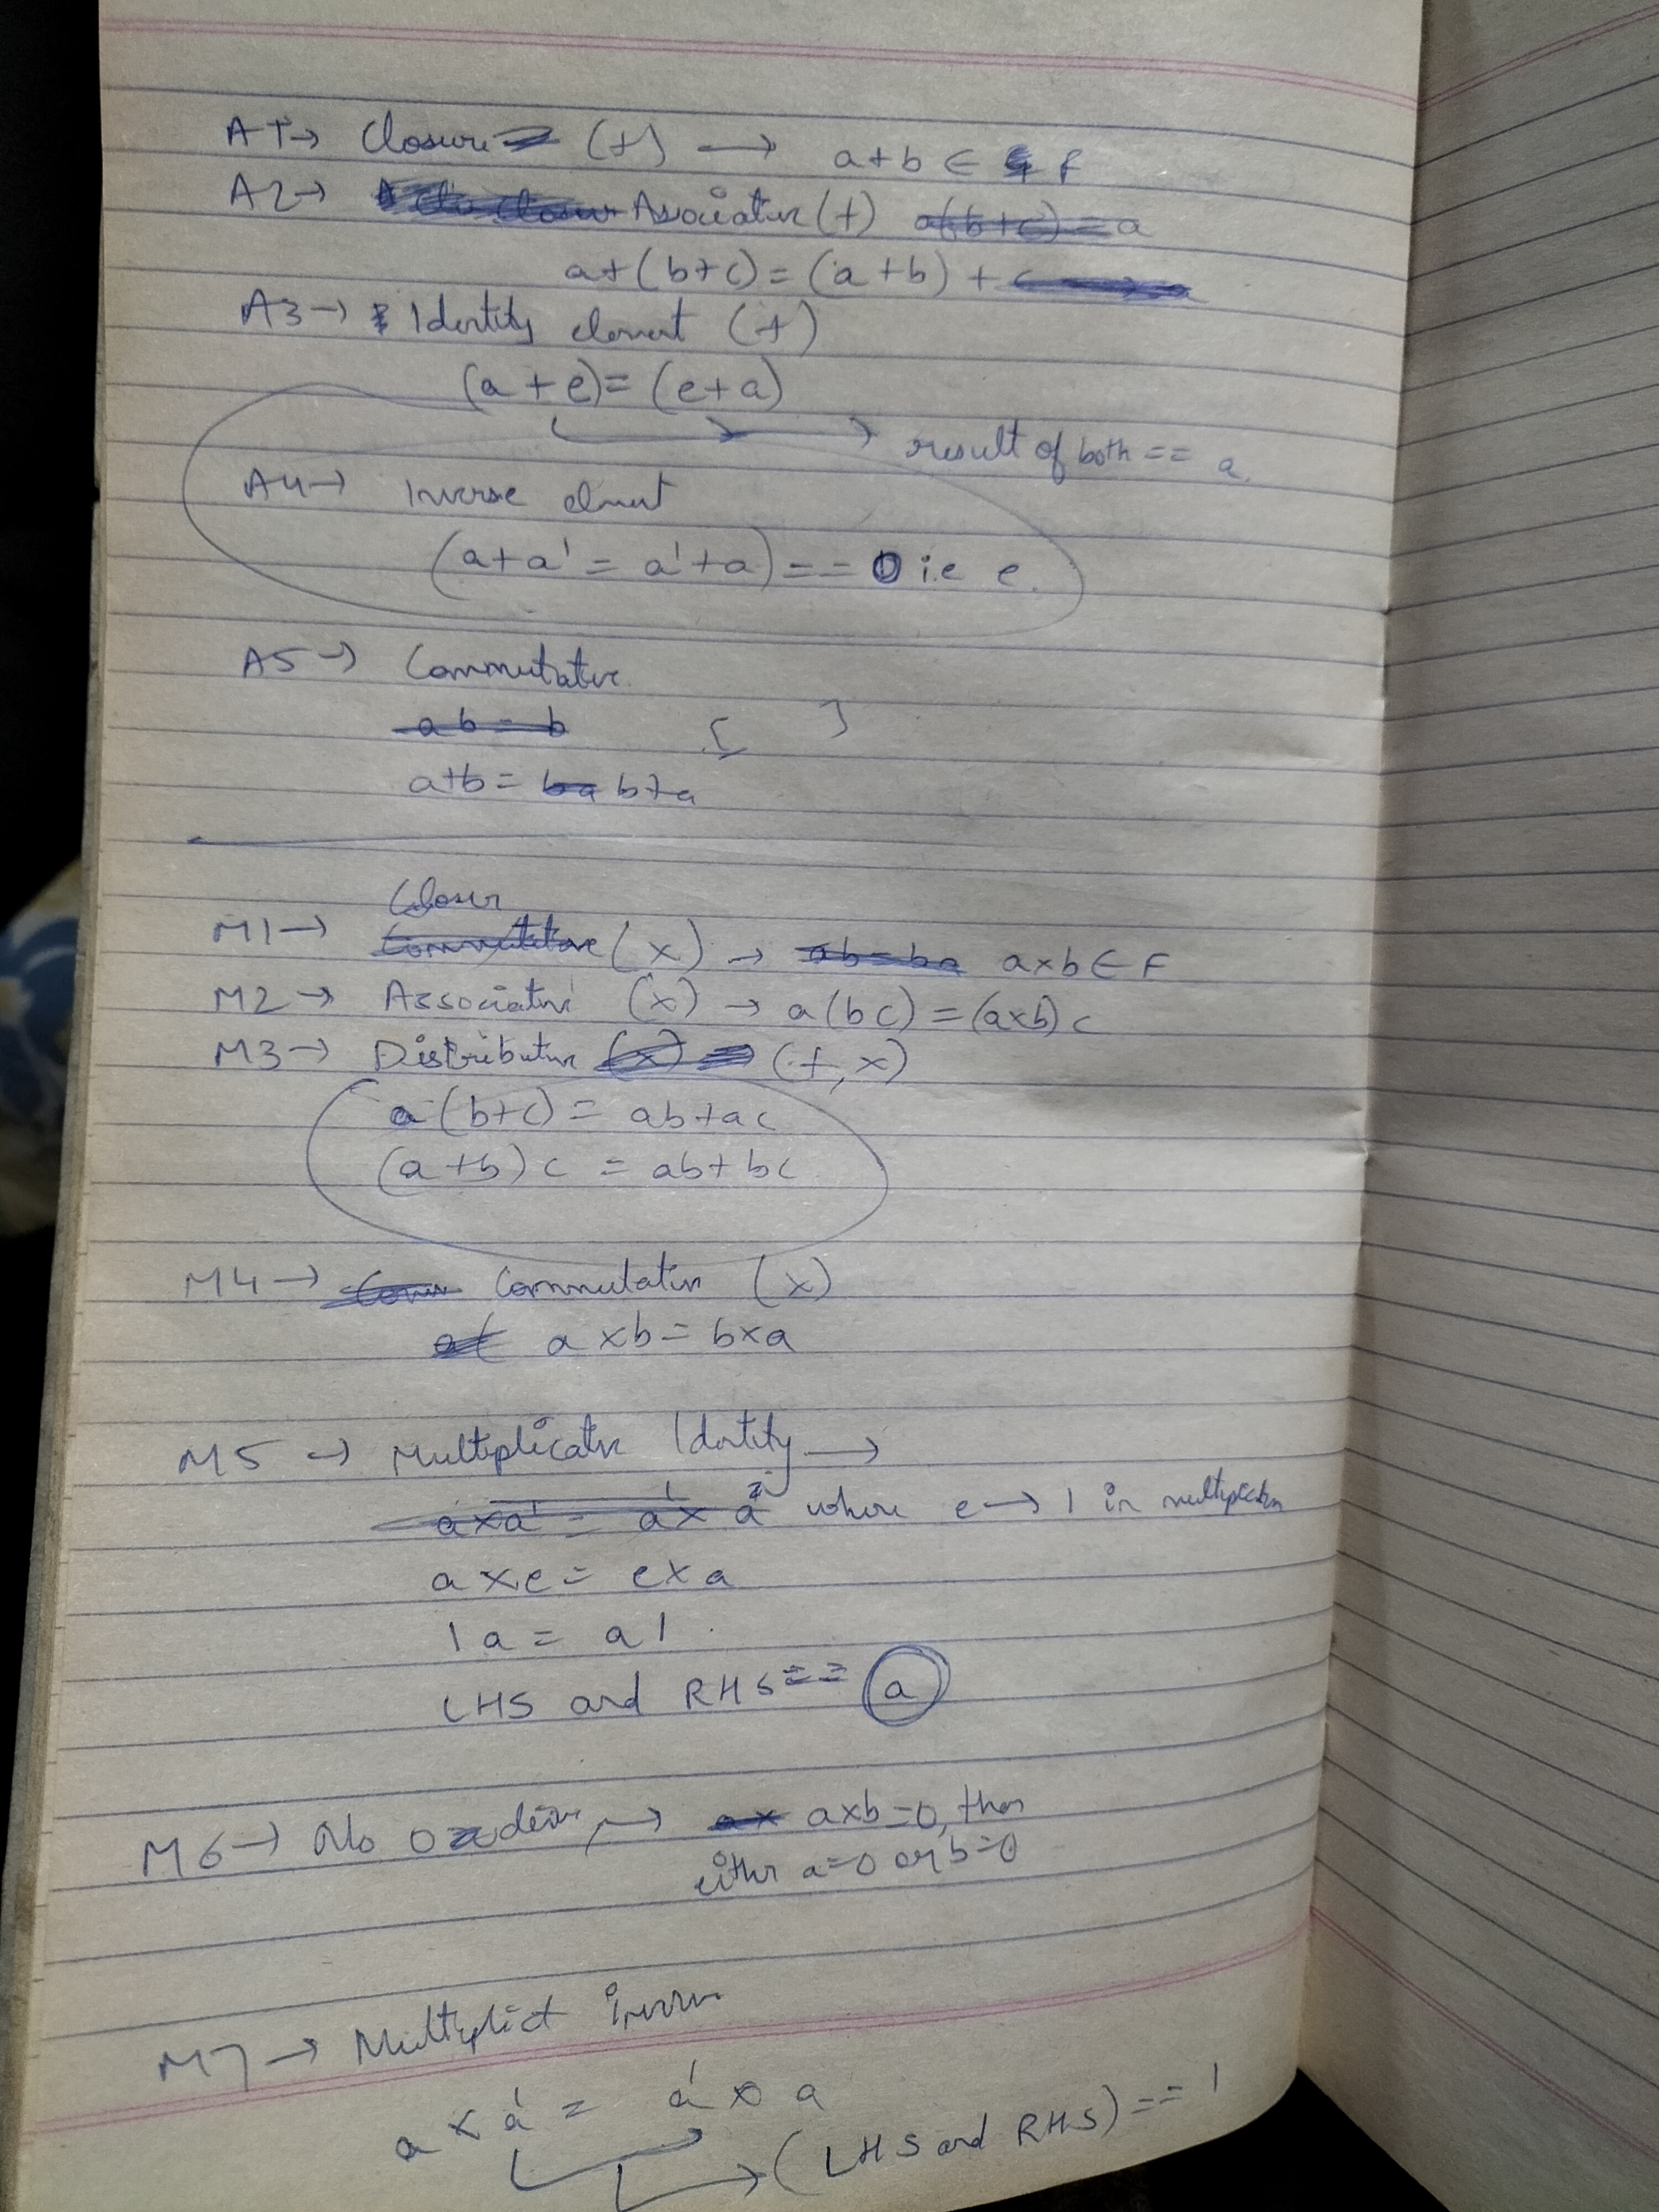 A1→ Closure (+) → a+b ∈ F
A2→ Associative (+) a(b+c) = a
a+(b+c) = (a+b) + c
A3→ Identity element (+)
(a+e) = (e+a)
→ result of both == a.
A4→ Inverse element
(a+a' = a'+a) == 0 i.e e.
A5→ Commutative.
ab = b [ ]
a+b = ba b+a
Closer
M1→ Commutative (x) → ab=ba axb ∈ F
M2→ Associative (x) → a(bc) = (axb)c
M3→ Distributive (x) (+,x)
a(b+c) = ab+ac
(a+b)c = ab+bc
M4→ Commutative (x)
a( a x b = b x a
M5→ Multiplicative Identity →
a x a' = a' x a where e→1 in multiplication
a x e = e x a
1a = a1.
LHS and RHS == a
M6→ No 0 → ax axb=0, then
either a=0 or b=0
M7→ Multiplict Inverse
a x a' = a' x a
→ (LHS and RHS) == 1